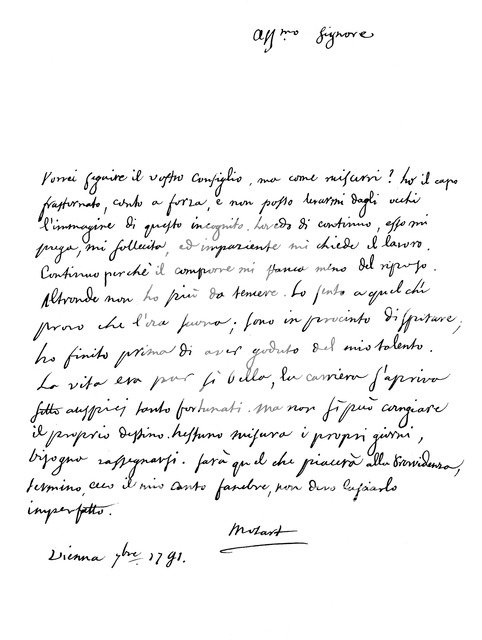 Aff.mo Signore
Vorrei seguire il vostro Consiglio, ma come riuscirvi? ho il capo
frastornato, conto a forza, e non posso levarmi dagli occhi
l'immagine di questo incognito. Lo vedo di continuo, esso mi
prega, mi sollecita, ed impaziente mi chiede il lavoro.
Continuo perchè il comporre mi stanca meno del riposo.
Altronde non ho più da temere. Lo sento a quel che
provo che l'ora suona; sono in procinto di spirare;
ho finito prima di aver goduto del mio talento.
La vita era pur sì bella, la carriera s'apriva
sotto auspicj tanto fortunati. ma non si può cangiare
il proprio destino. Nessuno misura i propri giorni,
bisogna rassegnarsi. sarà quel che piacerà alla Provvidenza,
termino, ecco il mio canto funebre, non devo lasciarlo
imperfetto.
Mozart
Vienna 7bre 1791.